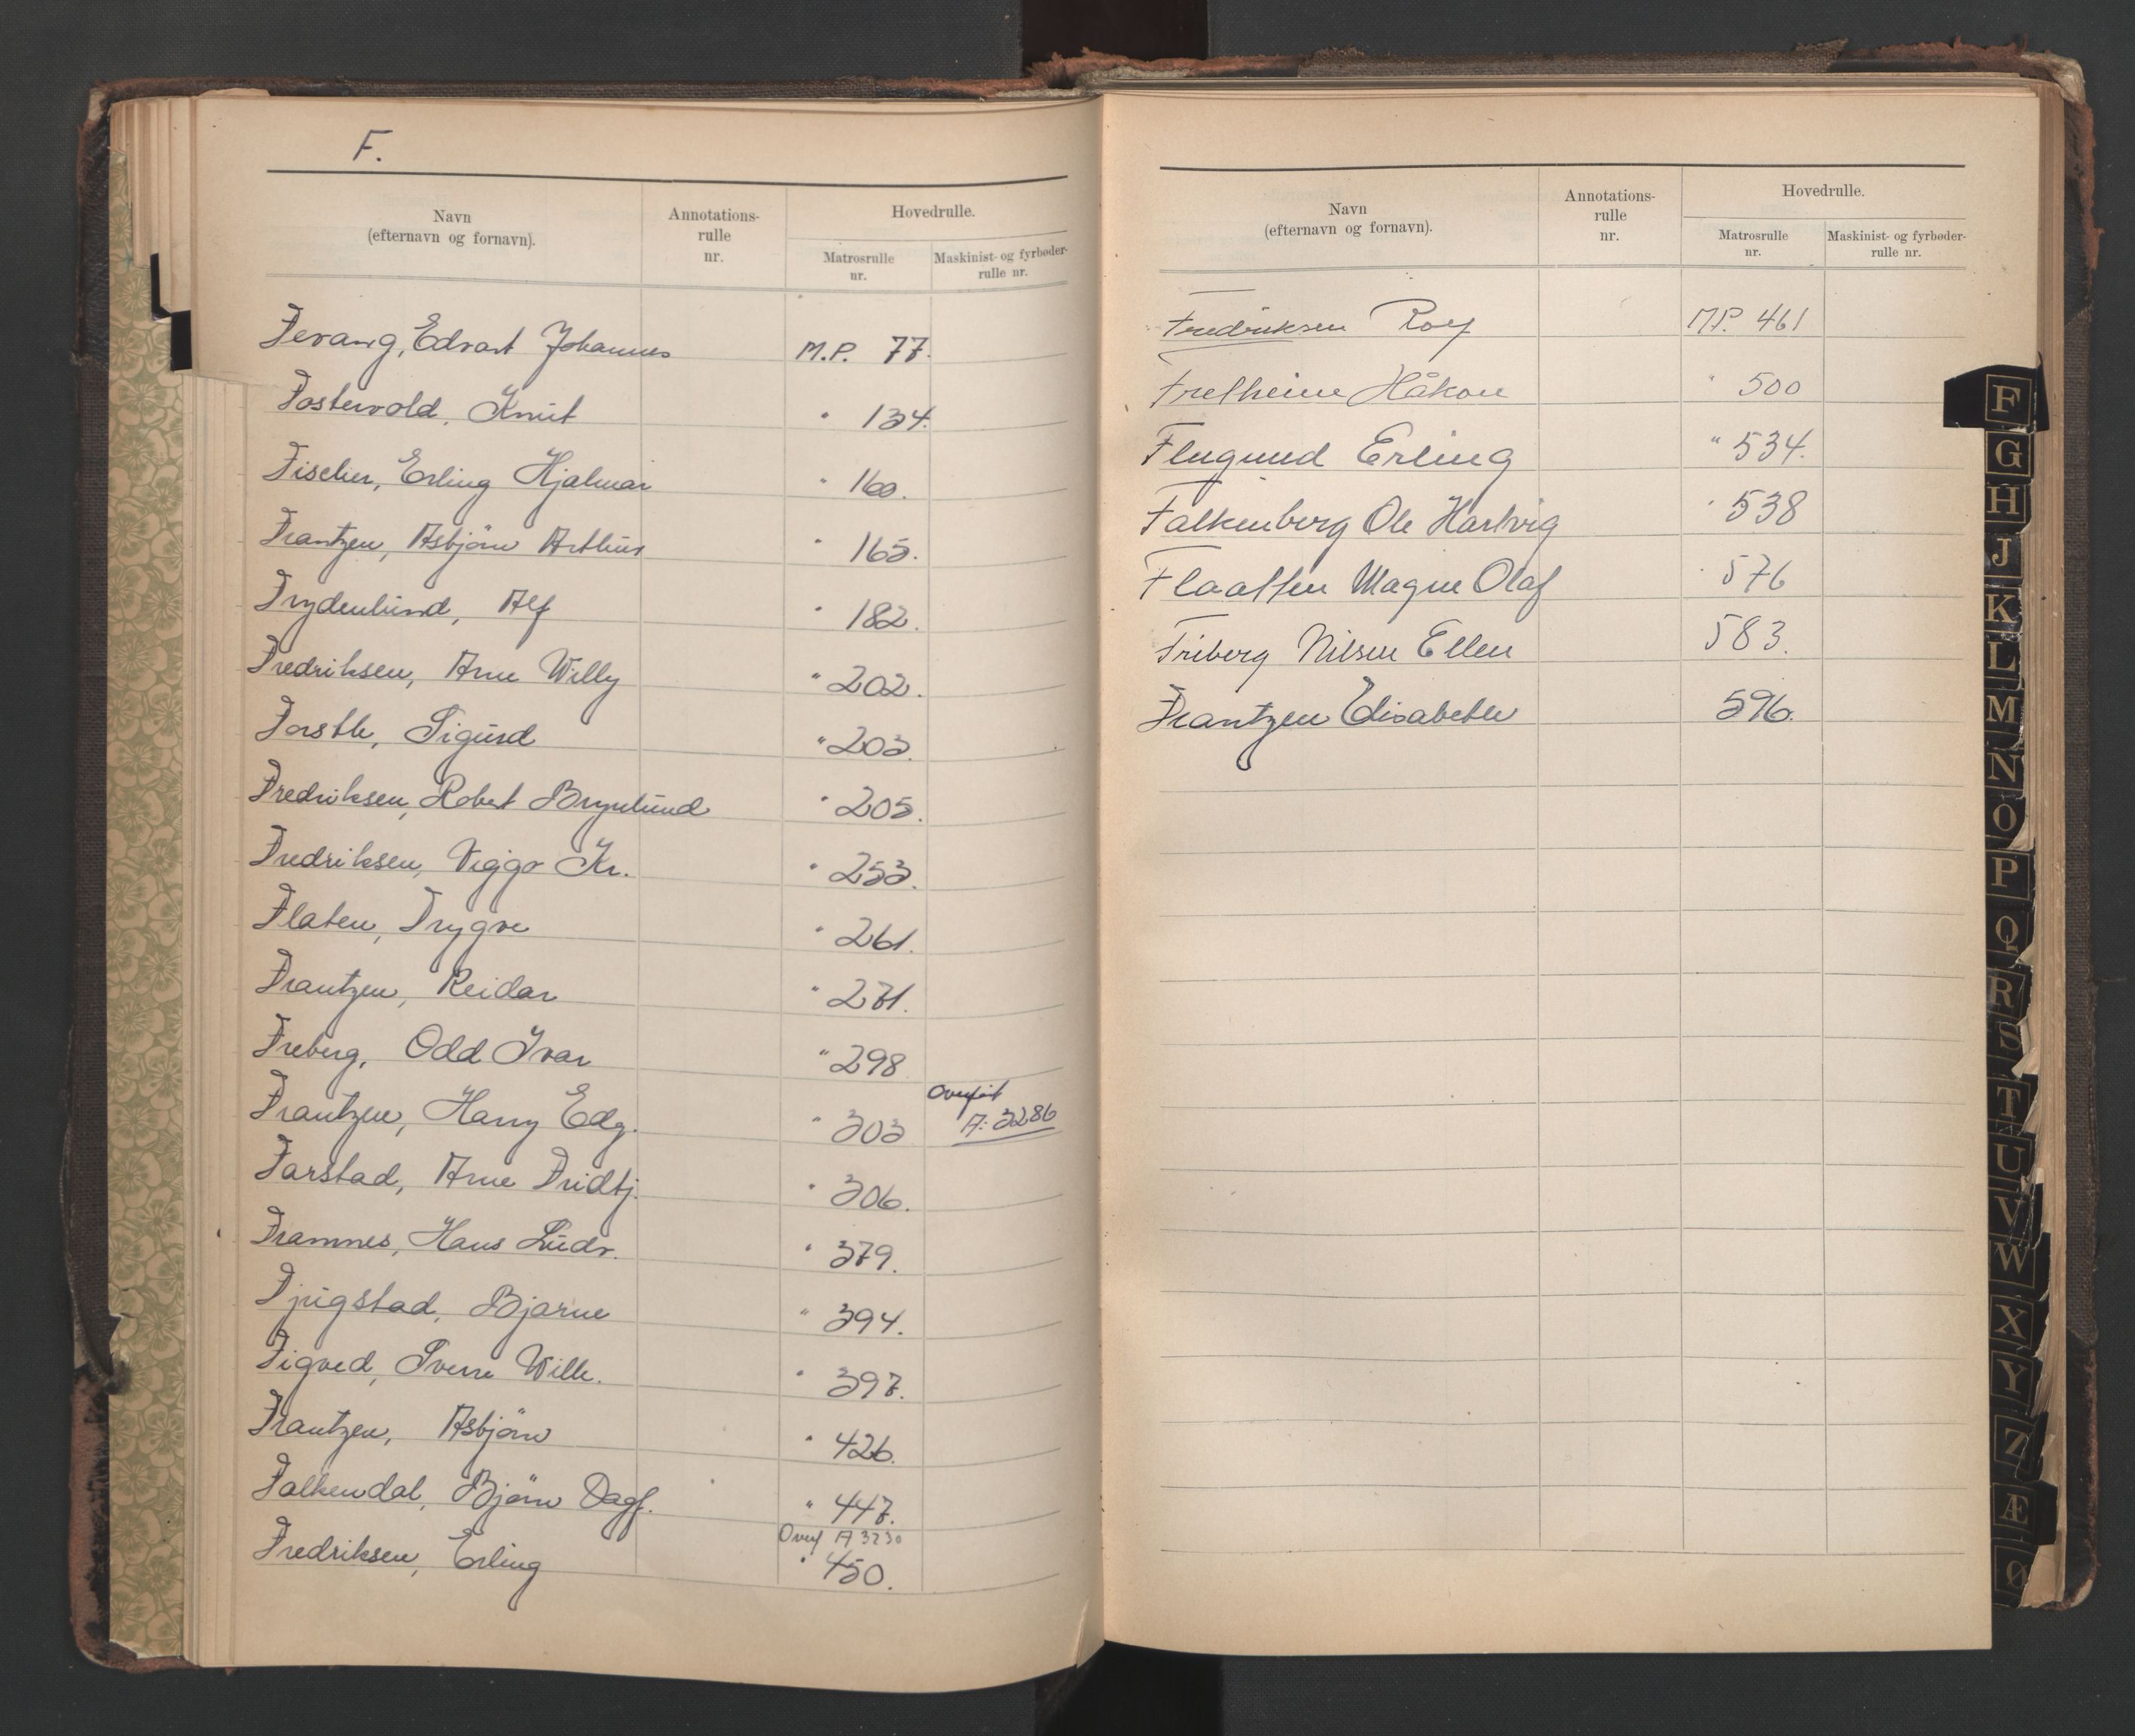 F.
Navn
(efternavn og fornavn).
Annotations-
rulle
nr.
Hovedrulle.
Matrosrulle
nr.
Maskinist- og fyrbøder-
rulle nr.
Fevang, Edvart Johannes M.P. 77.
Fostervold, Knut " 134.
Fischer, Erling Hjalmar " 160.
Frantzen, Asbjørn Arthur " 165.
Frydenlund, Alf " 182.
Fredriksen, Arne Willy " 202.
Forsth, Sigurd " 203.
Fredriksen, Robert Brynlund " 205.
Fredriksen, Viggo Kr. " 253.
Flaten, Trygve " 261.
Frantzen, Reidar " 271.
Freberg, Odd Ivar " 298
Overført
Frantzen, Harry Edg. " 303 A: 3286
Farstad, Arne Fridtj. " 306.
Framnes, Hans Ludv. " 379.
Fjugstad, Bjarne " 394.
Figved, Sverre Wilh. " 397.
Frantzen, Asbjørn " 426.
Falkendal, Bjørn Dagf. " 447.
Overf A 3230
Fredriksen, Erling " 450.
Navn
(efternavn og fornavn).
Annotations-
rulle
nr.
Hovedrulle.
Matrosrulle
nr.
Maskinist- og fyrbøder-
rulle nr.
Fredriksen Rolf MP. 461
Fretheim Håkon " 500
Flugund Erling " 534.
Falkenberg Ole Hartvig " 538
Flaatten Magne Olaf " 576
Friberg Nilsen Ellen 583.
Frantzen Elisabeth 596.
F
G
H
J
K
L
M
N
O
P
Q
R
S
T
U
V
W
X
Y
Z
Æ
Ø